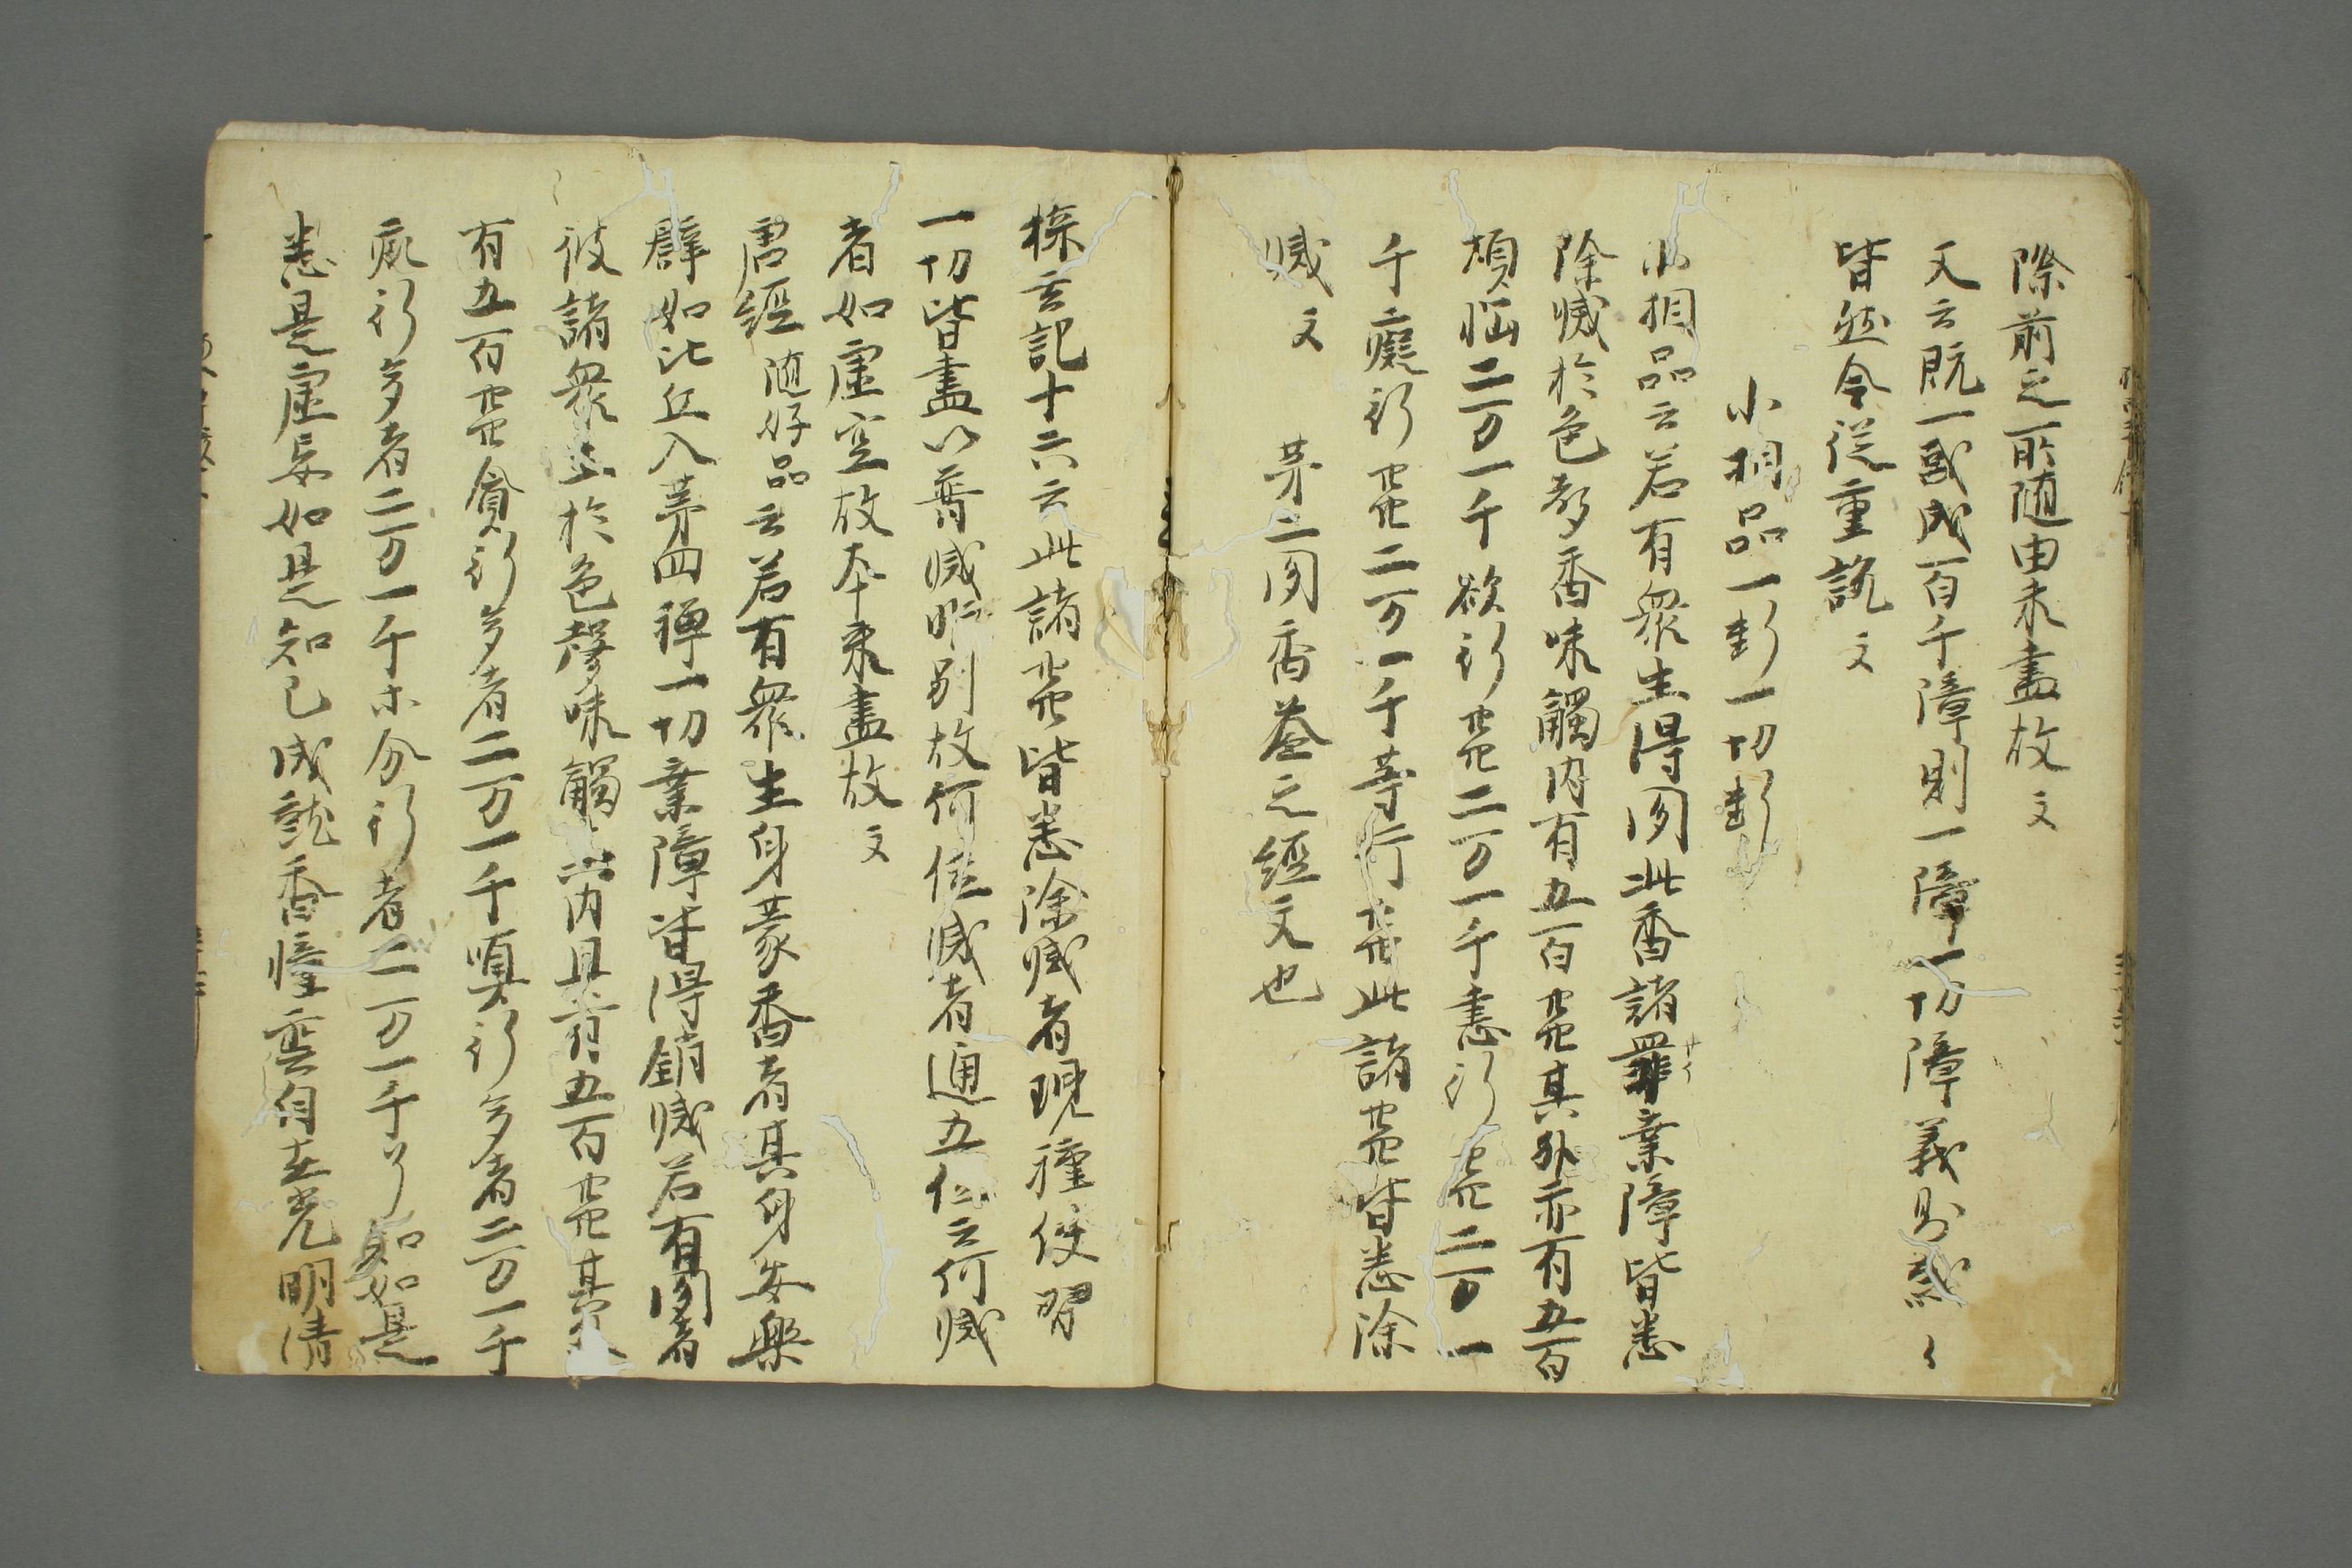 除前之所随由未盡故文
又云既一惑成百千障則一障一切障義則惑〻
皆然今從重説文
小相品一断一切断
小相品云若有衆生得聞此香諸罪業障皆悉
除滅於色声香味觸内有五百煩其外亦有五百
煩悩二万一千欲行煩二万一千恚行煩二万一
千癡行煩二万一千等行煩此諸煩皆悉除
滅文 第二聞香益之経文也
探玄記十六云此諸煩皆悉除滅者現種使習
一切皆盡以普滅 別故何位滅者通五位云何滅
者如虚空故本来盡故文
唐經随好品云若有衆生身蒙香者其身安樂
譬如比丘入第四禅一切業障皆得銷滅若有聞者
彼諸衆生於色聲味觸其内具有五百煩其
有五百煩貪行多者二万一千瞋行多者二万一千
癡行多者二万一千等分行者二万一千了知如是
悉是虚妄如是知已成就香幢雲自在光明清